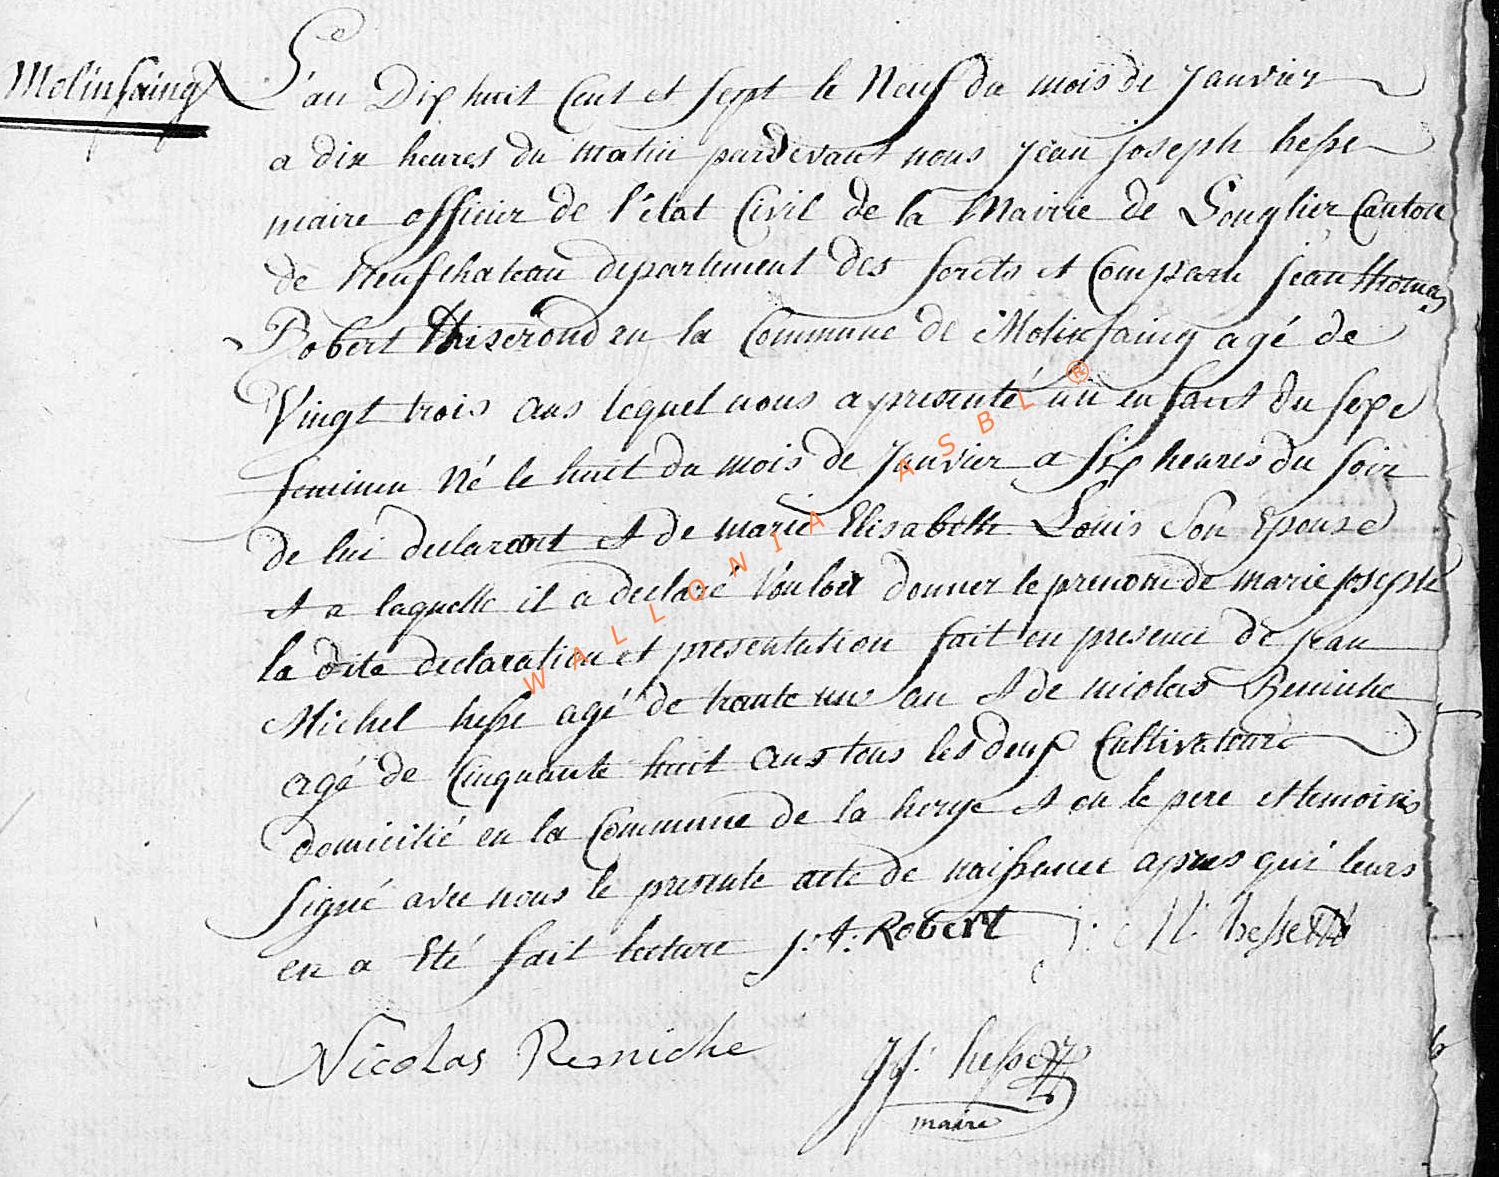 Molinfaing
L'an Dix huit Cent et sept le Neuf du mois de Janvier
a dix heures du matin pardevant nous jean joseph hesse
maire officier de l'état Civil de la Mairie de Longlier Canton
de Neufchateau departement des forets et Comparu jean thomas
Robert en la Commune de Molinfaing agé de
Vingt trois ans lequel nous a presenté un enfant du sexe
feminin Né le huit du mois de Janvier a six heures du soir
de lui declarant et de marie Elisabeth Louis Son Epouse
et a laquelle il a declaré Vouloir donner le prenom de marie josephe
la dite declaration et presentation fait en presence de jean
Michel hesse agé de trante un an et de nicolas Reniche
agé de Cinquante huit ans tous les deux Cultivateurs
domicilié en la Commune de la et on le pere et temoins
signé avec nous le presente acte de naissance apres qui leurs
en a Eté fait lecture j: t: Robert j: M: hesse
Nicolas Reniche
JJ: hesse
maire
WALLONIA ASBL ®